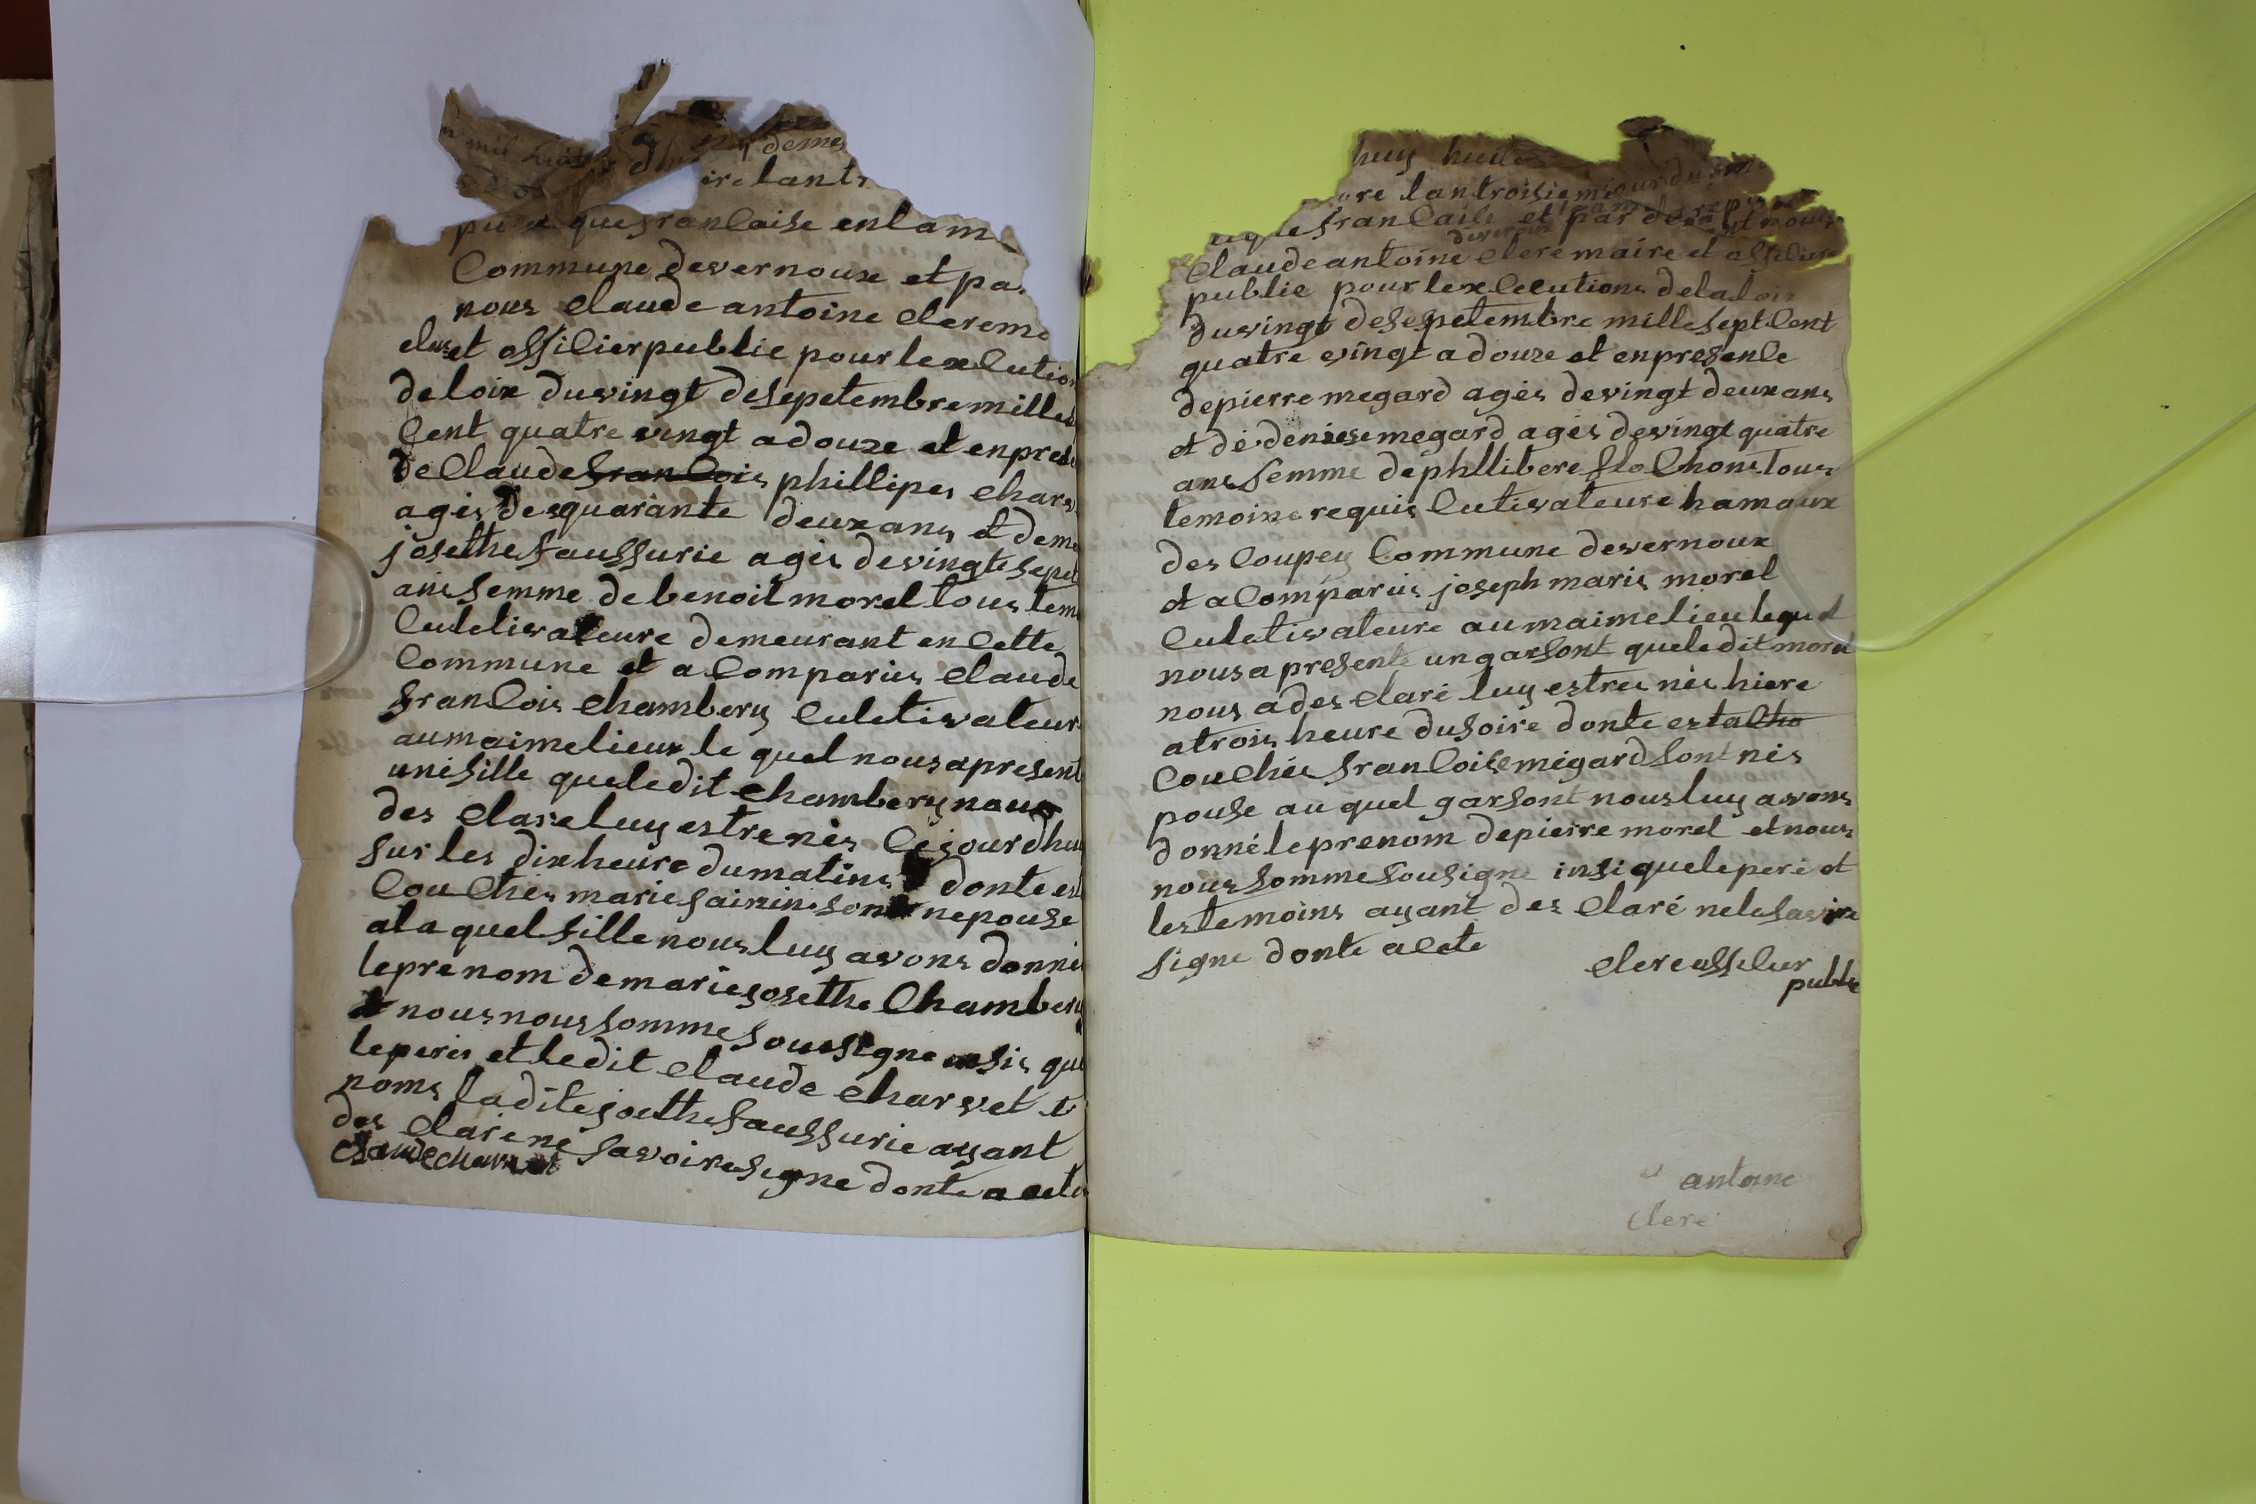 mil huit deme
ire lant
pu que francaise en lam
Commune devernoux et pa
nous claude antoine clere ma
elus et officier public pour lexcution
de loix du vingt de sepetembre mille s
Cent quatre vingt a douze et en prese
de Claude francois phillipes charv
agés des quarante deux ans et de ma
josethe faussurie agés de vingte sepet
ans femme de benoit morel tous tem
Culetivateure demeurant en cette
Commune et a Comparus Claude
francois chambery culetivateur
au maime lieux le quel nous a present
une fille que le dit chambery nous
des clare luy estre nés ce jourdhu
sur les dix heure du matins donte est
Couchés marie fainin son nepouse
a la quel fille nous luy avons donné
le prenom de marie josethe Chambery
et nous nous somme soussigne insis que
le peres et le dit claude charvet et
noms ladite joethe faussurie ayant
des clare ne savoire signe donte acete
Claude charvet
huy huit
ore lan troisieme
francaise et par de nous
devernoux
Claude antoine clere maire et officier
public pour lexecutions de la loix
du vingt de sepetembre mille sept Cent
quatre vingt a douze et en presence
de pierre megard agés de vingt deux ans
et de deniese megard agés de vingt quatre
ans femme de phllibere flochons tous
temoins requis Cutivateure hamaux
des Coupey Commune devernoux
et a Comparus joseph maris morel
Culetivateure au maime lieu lequel
nous a presente un garsont que le dit morel
nous a des claré luy estre nés hiere
a trois heure du soire donte est a Cho
Couchés francoise mégard sont nés
pouse au quel garsont nous luy avons
donné le prenom de pierre morel et nous
nous somme sousigne insi que le pere et
les temoins ayant des claré ne le savire
signe donte acete
clere officier
public
antoine
Clere